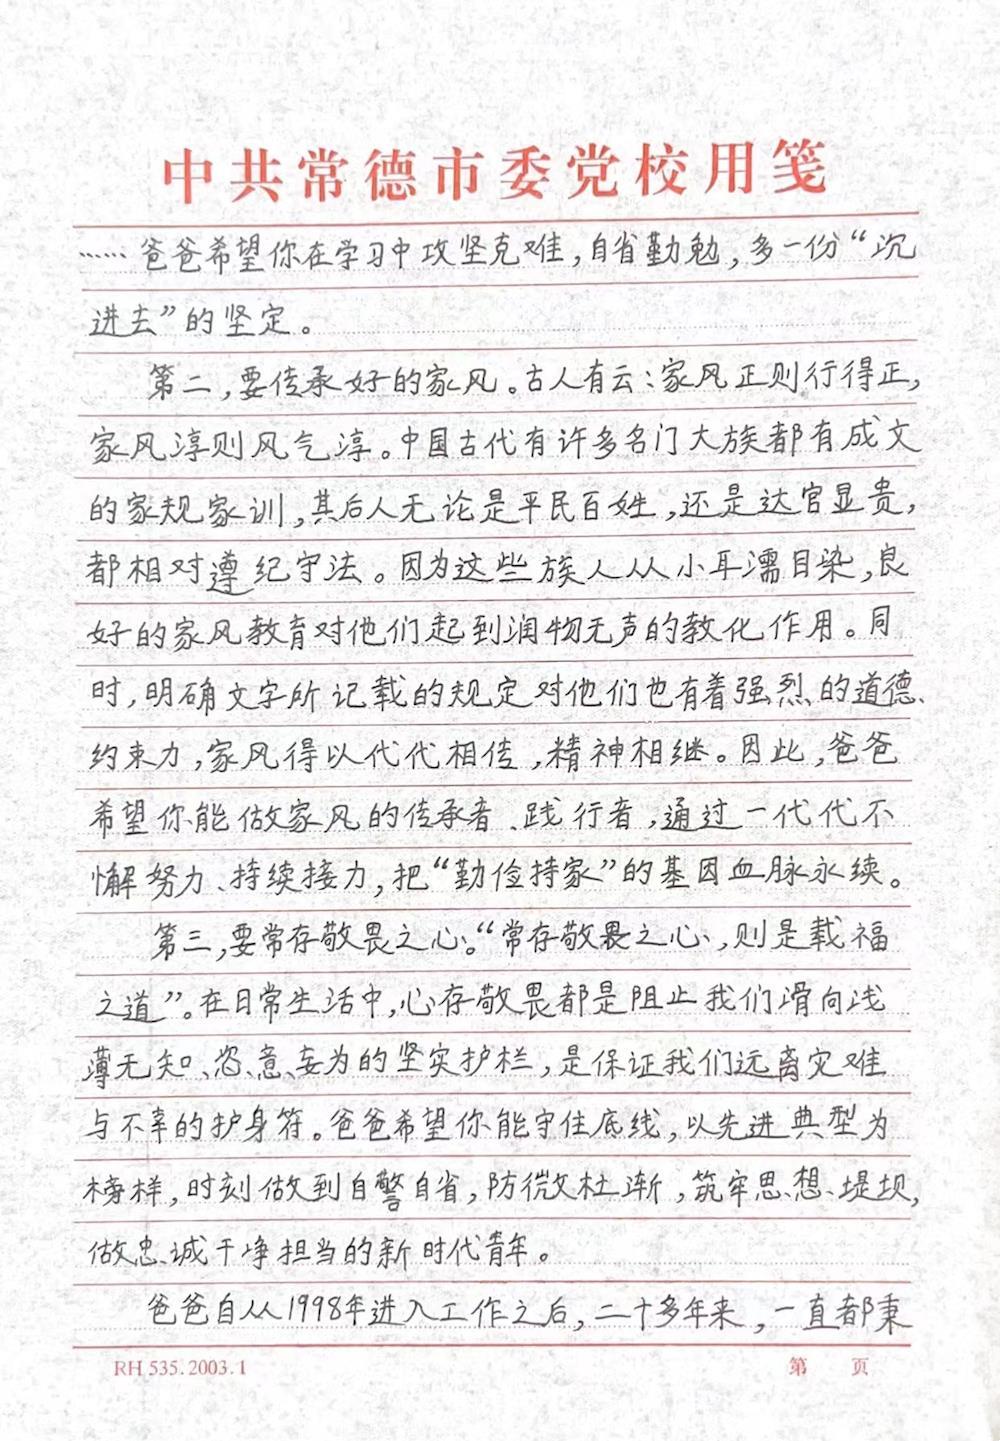 中共常德市委党校用笺
……爸爸希望你在学习中攻坚克难，自省勤勉，多一份“沉
进去”的坚定。
第二，要传承好的家风。古人有云：家风正则行得正，
家风淳则风气淳。中国古代有许多名门大族都有成文
的家规家训，其后人无论是平民百姓，还是达官显贵，
都相对遵纪守法。因为这些族人从小耳濡目染，良
好的家风教育对他们起到润物无声的教化作用。同
时，明确文字所记载的规定对他们也有着强烈的道德
约束力，家风得以代代相传，精神相继。因此，爸爸
希望你能做家风的传承者、践行者，通过一代代不
懈努力、持续接力，把“勤俭持家”的基因血脉永续。
第三，要常存敬畏之心。“常存敬畏之心，则是载福
之道”。在日常生活中，心存敬畏都是阻止我们滑向浅
薄无知、恣意妄为的坚实护栏，是保证我们远离灾难
与不幸的护身符。爸爸希望你能守住底线，以先进典型为
榜样，时刻做到自警自省，防微杜渐，筑牢思想堤坝，
做忠诚干净担当的新时代青年。
爸爸自从1998年进入工作之后，二十多年来，一直都秉
RH 535.2003.1
第 页